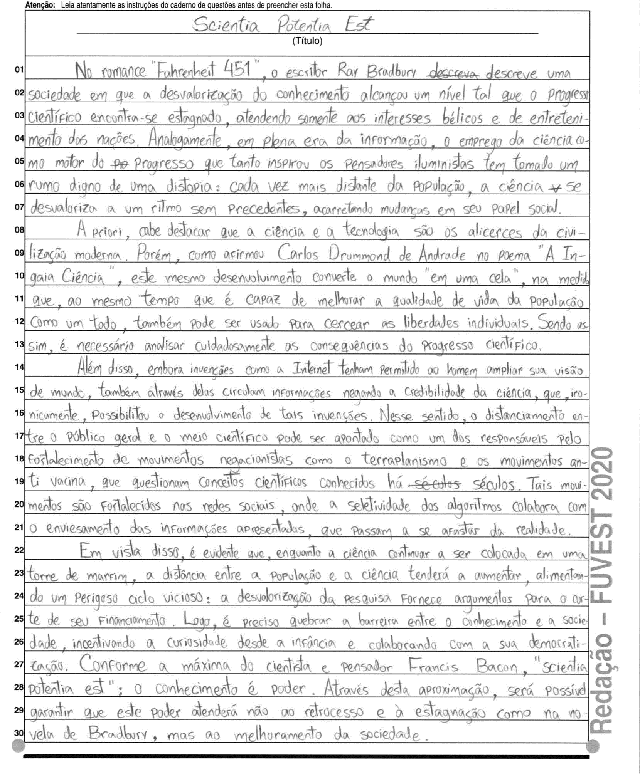 Atenção: Leia atentamente as instruções do caderno de questões antes de preencher esta folha.
Scientia Potentia Est
(Título)
01 No romance "Fahrenheit 451", o escritor Ray Bradbury descreva descreve uma
02 sociedade em que a desvalorização do conhecimento alcançou um nível tal que o progresso
03 científico encontra-se estagnado, atendendo somente aos interesses bélicos e de entreteni-
04 mento das nações. Analogamente, em plena era da informação, o emprego da ciência co-
05 mo motor do progresso que tanto inspirou os pensadores iluministas tem tomado um
06 rumo digno de uma distopia: cada vez mais distante da população, a ciência se
07 desvaloriza a um ritmo sem precedentes, acarretando mudanças em seu papel social.
08 A priori, cabe destacar que a ciência e a tecnologia são os alicerces da civi-
09 lização moderna. Porém, como afirmou Carlos Drummond de Andrade no poema "A In-
10 gaia Ciência", este mesmo desenvolvimento converte o mundo "em uma cela", na medida
11 que, ao mesmo tempo que é capaz de melhorar a qualidade de vida da população
12 como um todo, também pode ser usado para cercear as liberdades individuais. Sendo as-
13 sim, é necessário analisar cuidadosamente as consequências do progresso científico.
14 Além disso, embora invenções como a Internet tenham permitido ao homem ampliar sua visão
15 de mundo, também através delas circulam informações negando a credibilidade da ciência, que, iro-
16 nicamente, possibilitou o desenvolvimento de tais invenções. Nesse sentido, o distanciamento en-
17 tre o público geral e o meio científico pode ser apontado como um dos responsáveis pelo
18 fortalecimento de movimentos negacionistas como o terraplanismo e os movimentos an-
19 ti vacina, que questionam conceitos científicos conhecidos há séculos séculos. Tais movi-
20 mentos são fortalecidos nas redes sociais, onde a seletividade dos algoritmos colabora com
21 o enviesamento das informações apresentadas, que passam a se afastar da realidade.
22 Em vista disso, é evidente que, enquanto a ciência continuar a ser colocada em uma
23 torre de marfim, a distância entre a população e a ciência tenderá a aumentar, alimentan-
24 do um perigoso ciclo vicioso: a desvalorização da pesquisa fornece argumentos para o cor-
25 te de seu financiamento. Logo, é preciso quebrar a barreira entre o conhecimento e a socie-
26 dade, incentivando a curiosidade desde a infância e colaborando com a sua democrati-
27 zação. Conforme a máxima do cientista e pensador Francis Bacon, "scientia
28 potentia est"; o conhecimento é poder. Através desta aproximação, será possível
29 garantir que este poder atenderá não ao retrocesso e à estagnação como na no-
30 vela de Bradbury, mas ao melhoramento da sociedade.
Redação – FUVEST 2020